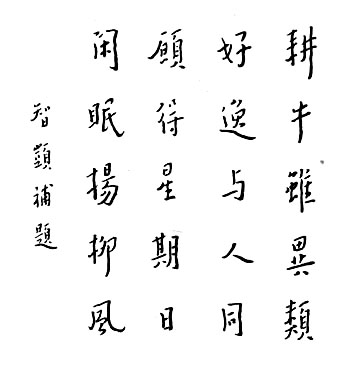 耕牛雖異類
好逸与人同
願得星期日
闲眠揚柳風
智顗補題